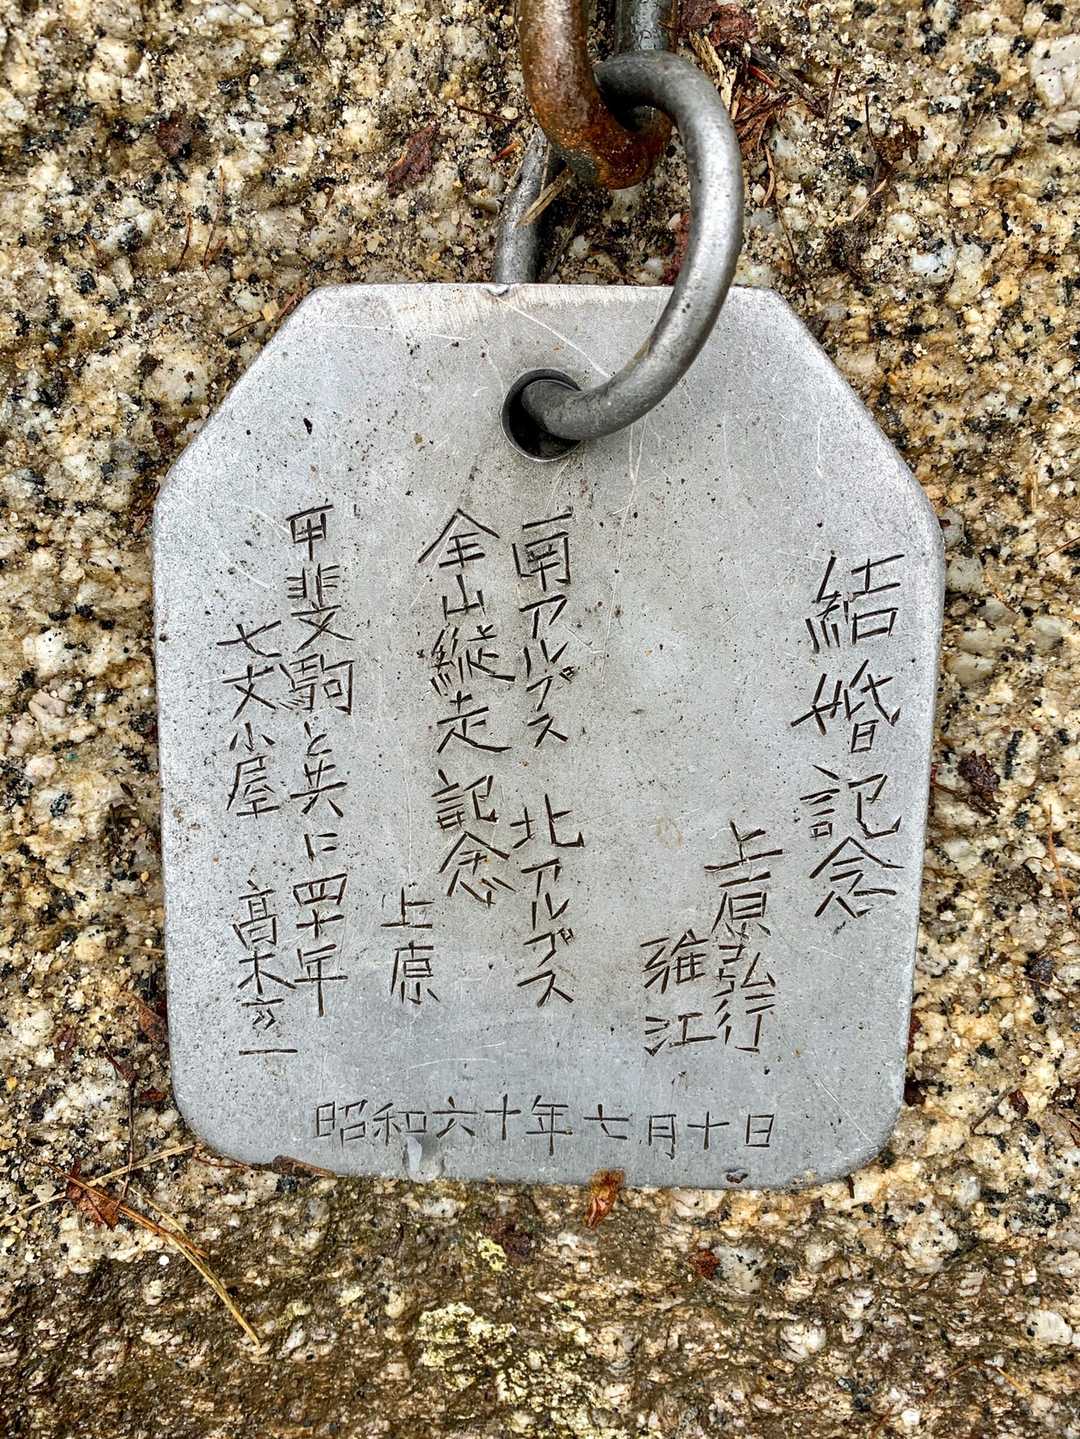 結婚記念
上原弘行
雅江
南アルプス 北アルプス
全山縦走記念
上原
甲斐駒と共に四十年
七丈小屋 高木
昭和六十年七月十日